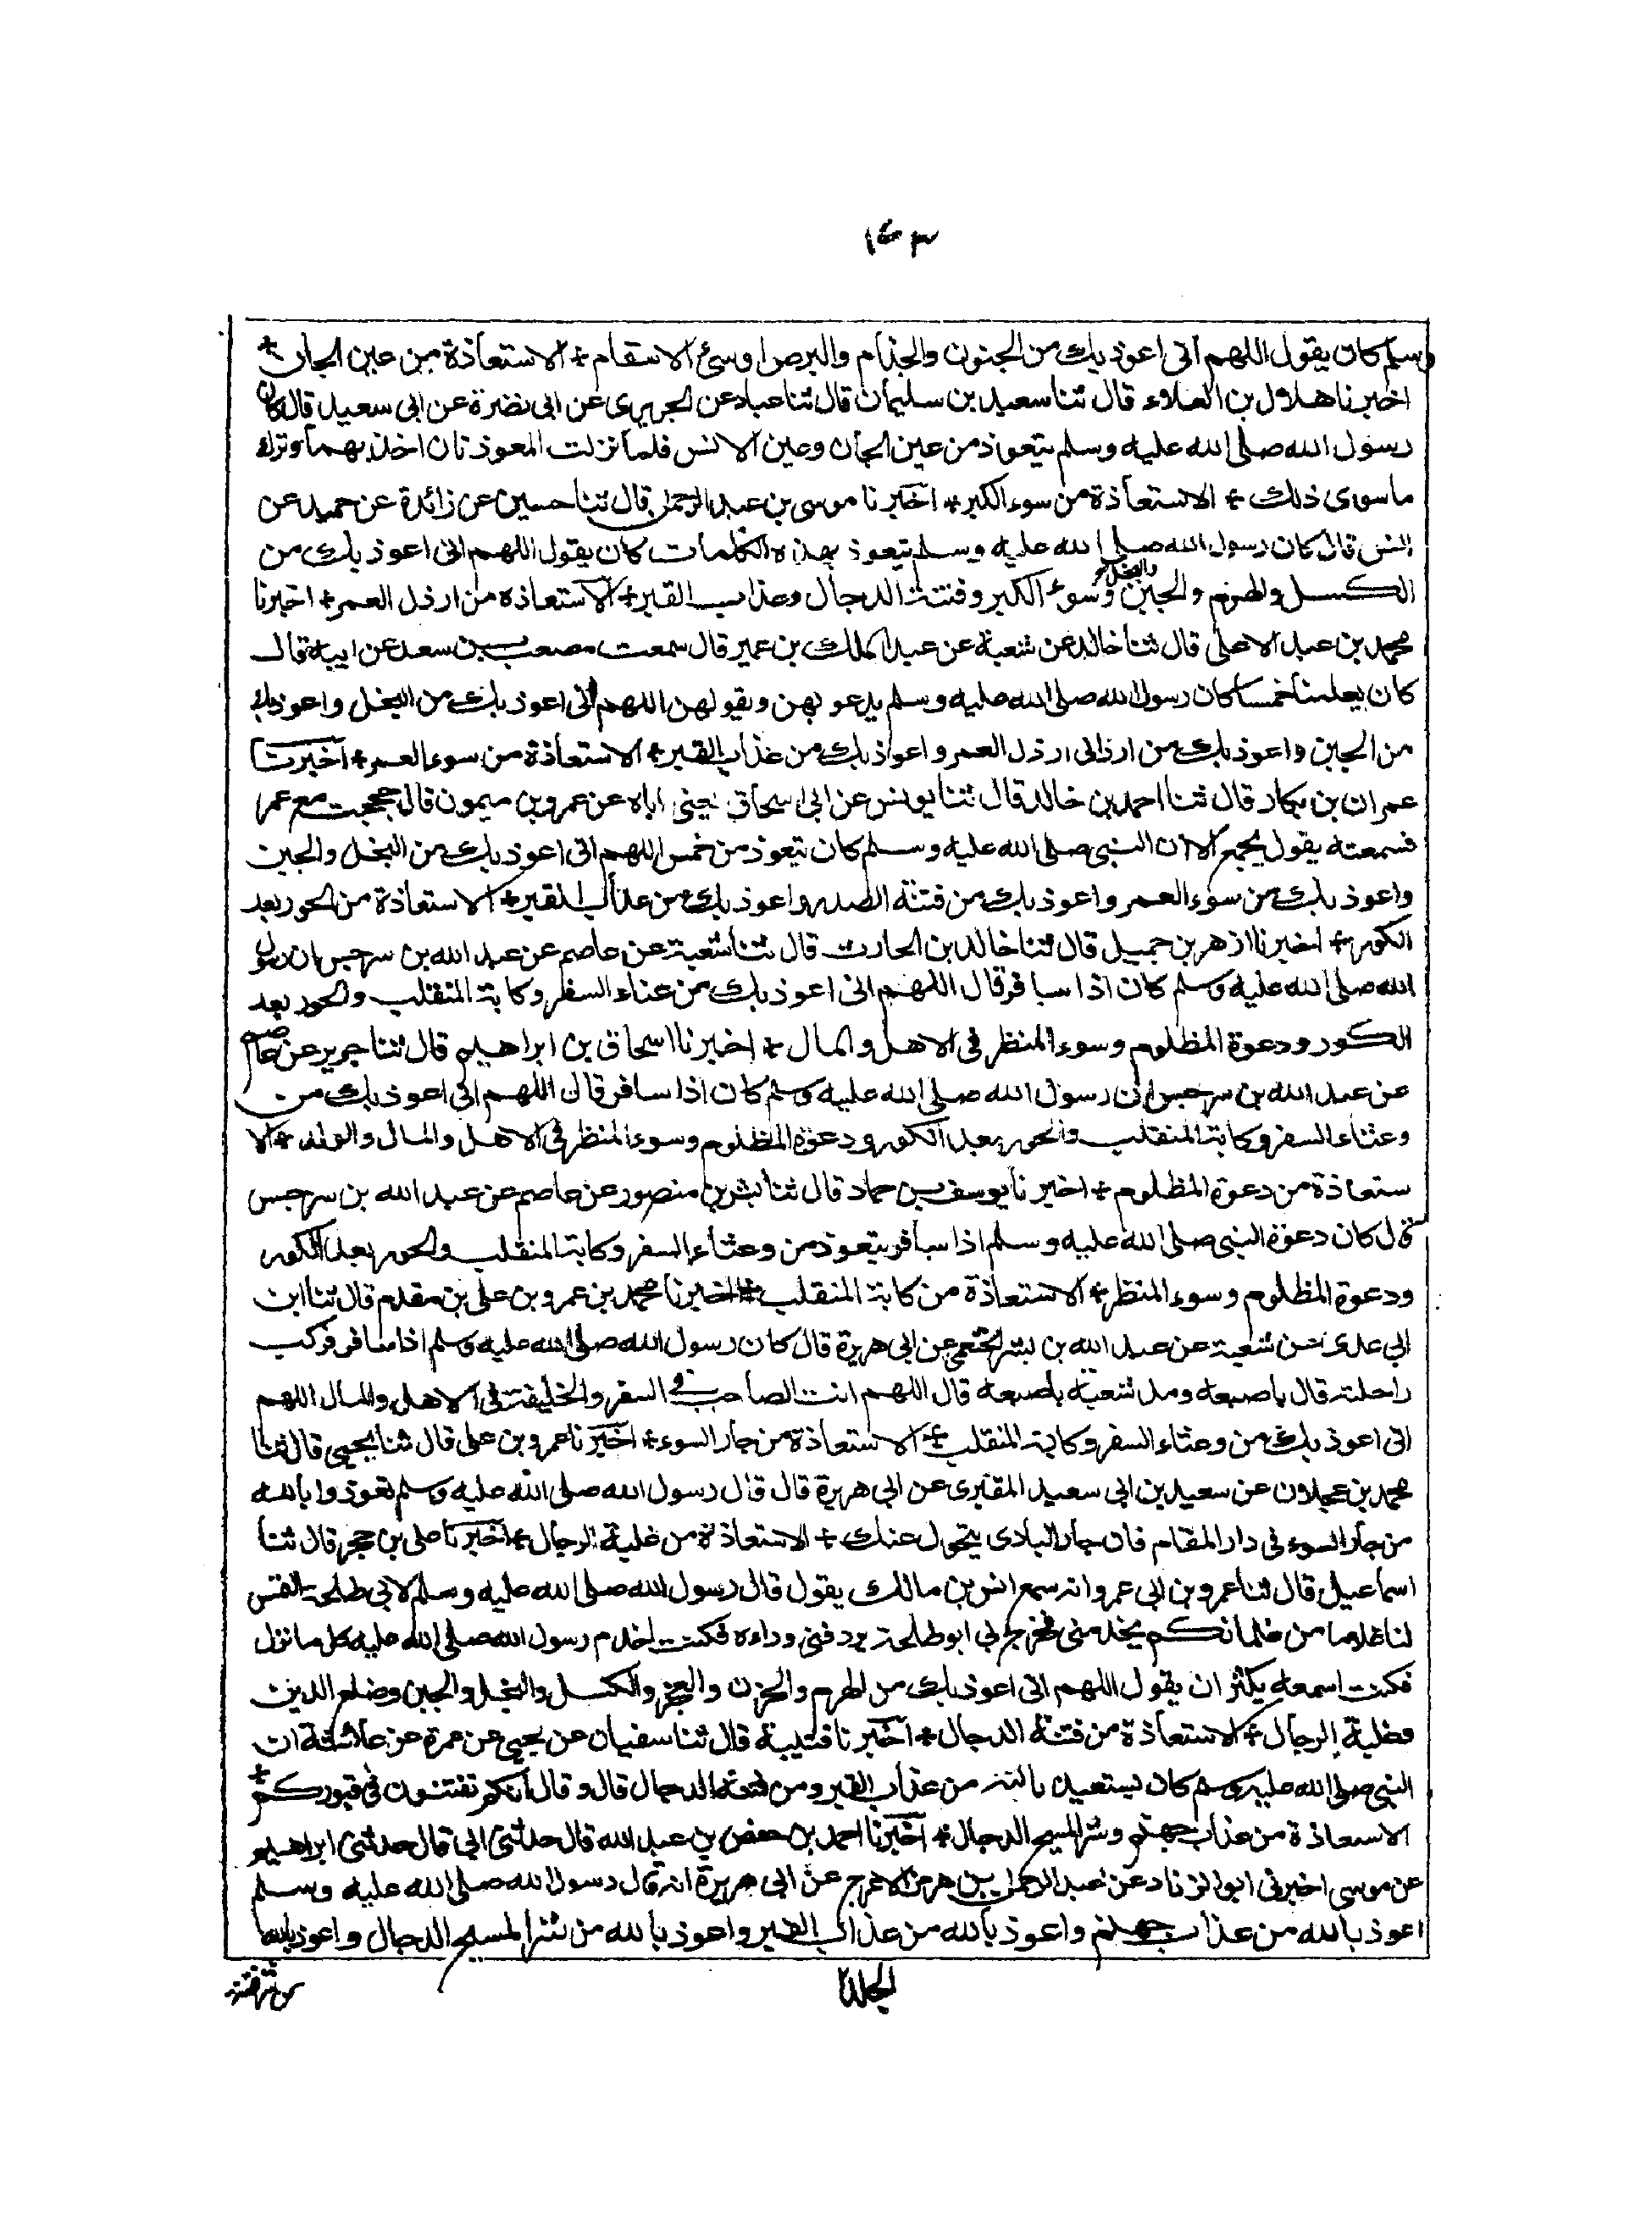 ١٤٣
وسلم كان يقول اللهم انى اعوذ بك من الجنون والجذام والبرص وسئ الاسقام + الاستعاذة من عين الجان +
اخبرنا هلال بن العلاء قال ثنا سعيد بن سليمان قال ثنا عباد عن الجريرى عن ابى نضرة عن ابى سعيد قال كان
رسول الله صلى الله عليه وسلم يتعوذ من عين الجان وعين الانس فلما نزلت المعوذتان اخذ بهما وترك
ما سوى ذلك + الاستعاذة من سوء الكبر + اخبرنا موسى بن عبد الرحمن قال ثنا حسين عن زائدة عن حميد عن
انس قال كان رسول الله صلى الله عليه وسلم يتعوذ بهذه الكلمات كان يقول اللهم انى اعوذ بك من
الكسل والهرم والجبن والبخل وسوء الكبر وفتنة الدجال وعذاب القبر + الاستعاذه من ارذل العمر + اخبرنا
محمد بن عبد الاعلى قال ثنا خالد عن شعبة عن عبد الملك بن عمير قال سمعت مصعب بن سعد عن ابيه قال
كان يعلمنا خمسا كان رسول الله صلى الله عليه وسلم يدعو بهن ويقولهن اللهم انى اعوذ بك من البخل واعوذ بك
من الجبن واعوذ بك من ارذالى ارذل العمر واعوذ بك من عذاب القبر + الاستعاذة من سوء العمر + اخبرنا
عمران بن بكار قال ثنا احمد بن خالد قال ثنا يونس عن ابى اسحاق يعنى اباه عن عمرو بن ميمون قال حججت مع عمر
فسمعته يقول بجمع الا ان النبى صلى الله عليه وسلم كان يتعوذ من خمس اللهم انى اعوذ بك من البخل والجبن
واعوذ بك من سوء العمر واعوذ بك من فتنة الصدر واعوذ بك من عذاب القبر + الاستعاذة من الحور بعد
الكور + اخبرنا ازهر بن جميل قال ثنا خالد بن الحارث قال ثنا شعبة عن عاصم عن عبد الله بن سرجس ان رسول
الله صلى الله عليه وسلم كان اذا سافر قال اللهم انى اعوذ بك من عناء السفر وكابة المنقلب والحور بعد
الكور ودعوة المظلوم وسوء المنظر فى الاهل والمال + اخبرنا اسحاق بن ابراهيم قال ثنا جرير عن عاصم
عن عبد الله بن سرجس ان رسول الله صلى الله عليه وسلم كان اذا سافر قال اللهم انى اعوذ بك من
وعثاء السفر وكابة المنقلب والحور بعد الكور ودعوة المظلوم وسوء المنظر فى الاهل والمال والولد + الا
ستعاذة من دعوة المظلوم + اخبرنا يوسف بن حماد قال ثنا بشر بن منصور عن عاصم عن عبد الله بن سرجس
قال كان دعوة النبى صلى الله عليه وسلم اذا سافر يتعوذ من وعثاء السفر وكابة المنقلب والحور بعد الكور
ودعوة المظلوم وسوء المنظر + الاستعاذة من كابة المنقلب + اخبرنا محمد بن عمرو بن على بن مقدم قال ثنا ابن
ابى عدى عن شعبة عن عبد الله بن بشر الخثعمى عن ابى هريرة قال كان رسول الله صلى الله عليه وسلم اذا سافر فركب
راحلته قال باصبعه ومد شعبة باصبعه قال اللهم انت الصاحب فى السفر والخليفة فى الاهل والمال اللهم
انى اعوذ بك من وعثاء السفر وكابة المنقلب + الاستعاذة من جار السوء + اخبرنا عمرو بن على قال ثنا يحيى قال ثنا
محمد بن عجلان عن سعيد بن ابى سعيد المقبرى عن ابى هريرة قال قال رسول الله صلى الله عليه وسلم تعوذوا بالله
من جار السوء فى دار المقام فان جار البادى يتحول عنك + الاستعاذة من غلبة الرجال + اخبرنا على بن حجر قال ثنا
اسماعيل قال ثنا عمرو بن ابى عمرو انه سمع انس بن مالك يقول قال رسول الله صلى الله عليه وسلم لابى طلحة التمس
لنا غلاما من غلمانكم يخدمنى فخرج بى ابو طلحة يردفنى وراءه فكنت اخدم رسول الله صلى الله عليه كل ما نزل
فكنت اسمعه يكثر ان يقول اللهم انى اعوذ بك من الهرم والحزن والعجز والكسل والبخل والجبن وضلع الدين
وغلبة الرجال + الاستعاذة من فتنة الدجال + اخبرنا قتيبة قال ثنا سفيان عن يحيى عن عمرة عن عائشة ان
النبى صلى الله عليه وسلم كان يستعيذ بالله من عذاب القبر ومن فتنة الدجال قال وقال انكم تفتنون فى قبوركم +
الاستعاذة من عذاب جهنم وشر المسيح الدجال + اخبرنا احمد بن حفص بن عبد الله قال حدثنى ابى قال حدثنى ابراهيم
عن موسى اخبرنى ابو الزناد عن عبد الرحمن بن هرمز الاعرج عن ابى هريرة انه قال رسول الله صلى الله عليه وسلم
اعوذ بالله من عذاب جهنم واعوذ بالله من عذاب القبر واعوذ بالله من شر المسيح الدجال واعوذ بالله
من شر فتنة